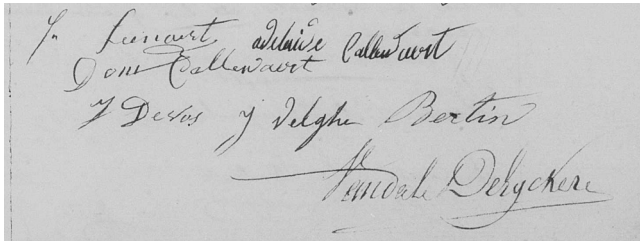 Lienart adelaide Callewaert
Dom Callewaert
J Devos J Velghe Bertin
Vandale Deryckere